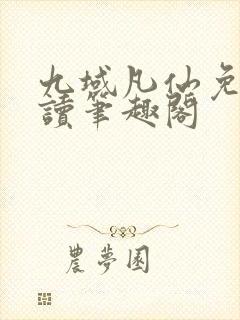 九域凡仙免
讀筆趣閣
農夢園